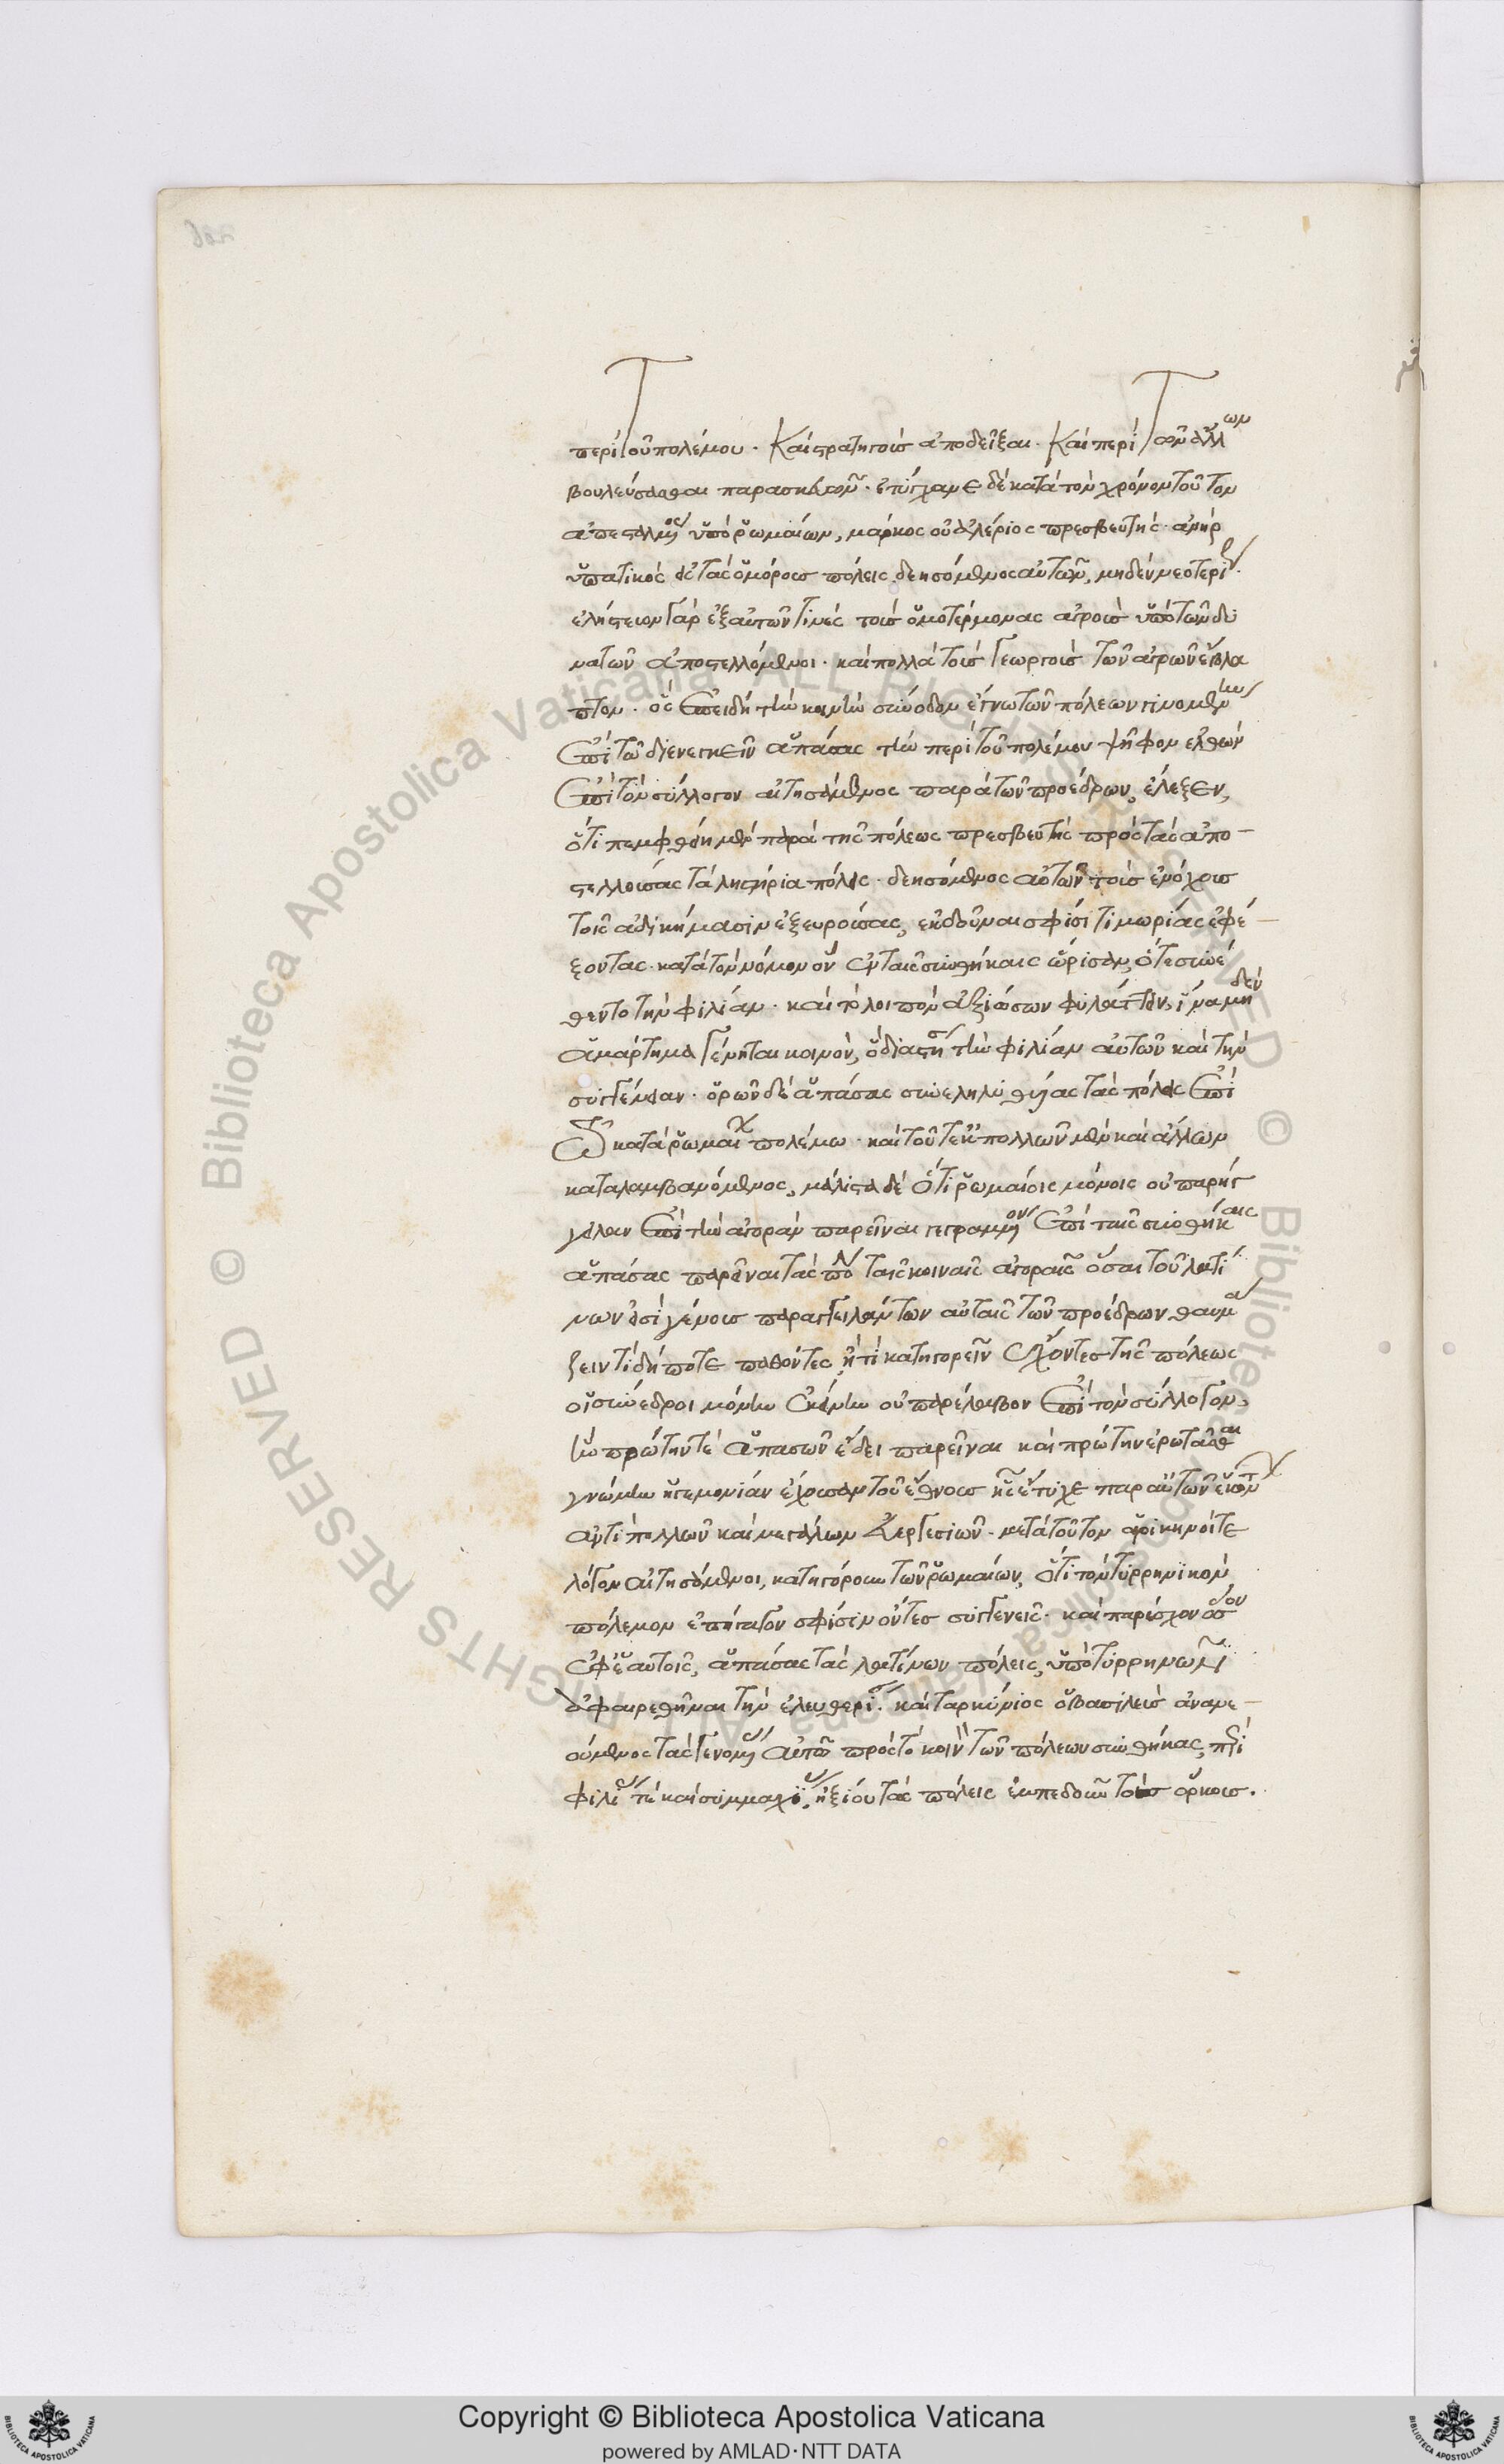 περὶ τοῦ πολέμου. Καὶ στρατηγοὺς ἀποδεῖξαι. Καὶ περὶ τῶν ἄλλων
βουλεύσασθαι παρασκευῶν. ἐτύγχανε δὲ κατὰ τὸν χρόνον τοῦτον
ἀπεσταλμένος ὑπὸ ῥωμαίων, μάρκος οὐαλέριος πρεσβευτής. ἀνὴρ
ὑπατικὸς εἰς τὰς ὁμόρους πόλεις δεησόμενος αὐτῶν, μηδὲν νεοτερίζειν.
ἐλῄστευον γὰρ ἐξ αὐτῶν τινὲς τοὺς ὁμοτέρμονας ἀγροὺς ὑπὸ τῶν δυ
νατῶν ἀποστελλόμενοι. καὶ πολλὰ τοὺς γεωργοὺς τῶν ἀγρῶν ἔβλα
πτον. ὃς ἐπειδὴ τὴν κοινὴν σύνοδον ἔγνω τῶν πόλεων γινομένην
ἐπὶ τῶ διενεγκεῖν ἁπάσας τὴν περὶ τοῦ πολέμου ψῆφον ἐλθὼν
ἐπὶ τὸν σύλλογον αἰτησάμενος παρὰ τῶν προέδρων, ἔλεξεν,
ὅτι πεμφθείη μὲν παρὰ τῆς πόλεως πρεσβευτὴς πρὸς τὰς ἀπο-
στελλούσας τὰ λῃστήρια πόλεις. δεησόμενος αὐτῶν τοὺς ἐνόχους
τοῖς ἀδικήμασιν ἐξευρούσας, ἐκδοῦναι σφίσι τιμωρίας ἐφέ-
ξοντας. κατὰ τὸν νόμον ὃν ἐν ταῖς συνθήκαις ὥρισαν, ὅτε συνέ
θεντο τὴν φιλίαν. καὶ τὸ λοιπὸν ἀξιώσων φυλάττειν, ἵνα μηδὲν
ἁμάρτημα γένηται κοινὸν, ὃ διαστήσει τὴν φιλίαν αὐτῶν καὶ τὴν
συγγένειαν. ὁρῶν δὲ ἁπάσας συνεληλυθυίας τὰς πόλεις ἐπὶ
τῶ κατὰ ῥωμαίων πολέμω. καὶ τοῦτ' ἐκ πολλῶν μὲν καὶ ἄλλων
καταλαμβανόμενος, μάλιστα δὲ ὅτι ῥωμαίοις μόνοις οὐ παρήγ
γειλαν ἐπὶ τὴν ἀγορὰν παρεῖναι γεγραμμένον ἐπὶ ταῖς συνθήκαις
ἁπάσας παρεῖναι τὰς πόλεις ταῖς κοιναῖς ἀγοραῖς ὅσαι τοῦ λατί
νων εἰσὶ γένους παραγγειλάντων αὐταῖς τῶν προέδρων θαυμά
ζειν τί δήποτε παθόντες, ἢ τί κατηγορεῖν ἔχοντες τῆς πόλεως
οἱ σύνεδροι μόνην ἐκείνην οὐ παρέλαβον ἐπὶ τὸν σύλλογον,
ἣν πρώτην τὲ ἁπασῶν ἔδει παρεῖναι καὶ πρώτην ἐρωτᾶσθαι
γνώμην ἡγεμονίαν ἔχουσαν τοῦ ἔθνους ἧς ἔτυχε παρ' αὐτῶν ἑκόντων
ἀντὶ πολλῶν καὶ μεγάλων εὐεργεσιῶν. μετὰ τοῦτον ἀρικηνοί τε
λόγον αἰτησάμενοι, κατηγόρουν τῶν ῥωμαίων, ὅτι τὸν τυρρηνικὸν
πόλεμον ἐπήγαγον σφίσιν ὄντες συγγενεῖς. καὶ παρέσχον ὅσον
ἐφ' ἑαυτοῖς, ἁπάσας τὰς λατίνων πόλεις, ὑπὸ τυρρηνῶν
ἀφαιρεθῆναι τὴν ἐλευθερίαν. καὶ ταρκύνιος ὁ βασιλεὺς ἀνανε-
ούμενος τὰς γενομένας αὐτῶ πρὸς τὸ κοινὸν τῶν πόλεων συνθήκας, περὶ
φιλίας τὲ καὶ συμμαχίας, ἠξίου τὰς πόλεις ἐμπεδοῦν τοὺς ὅρκους.